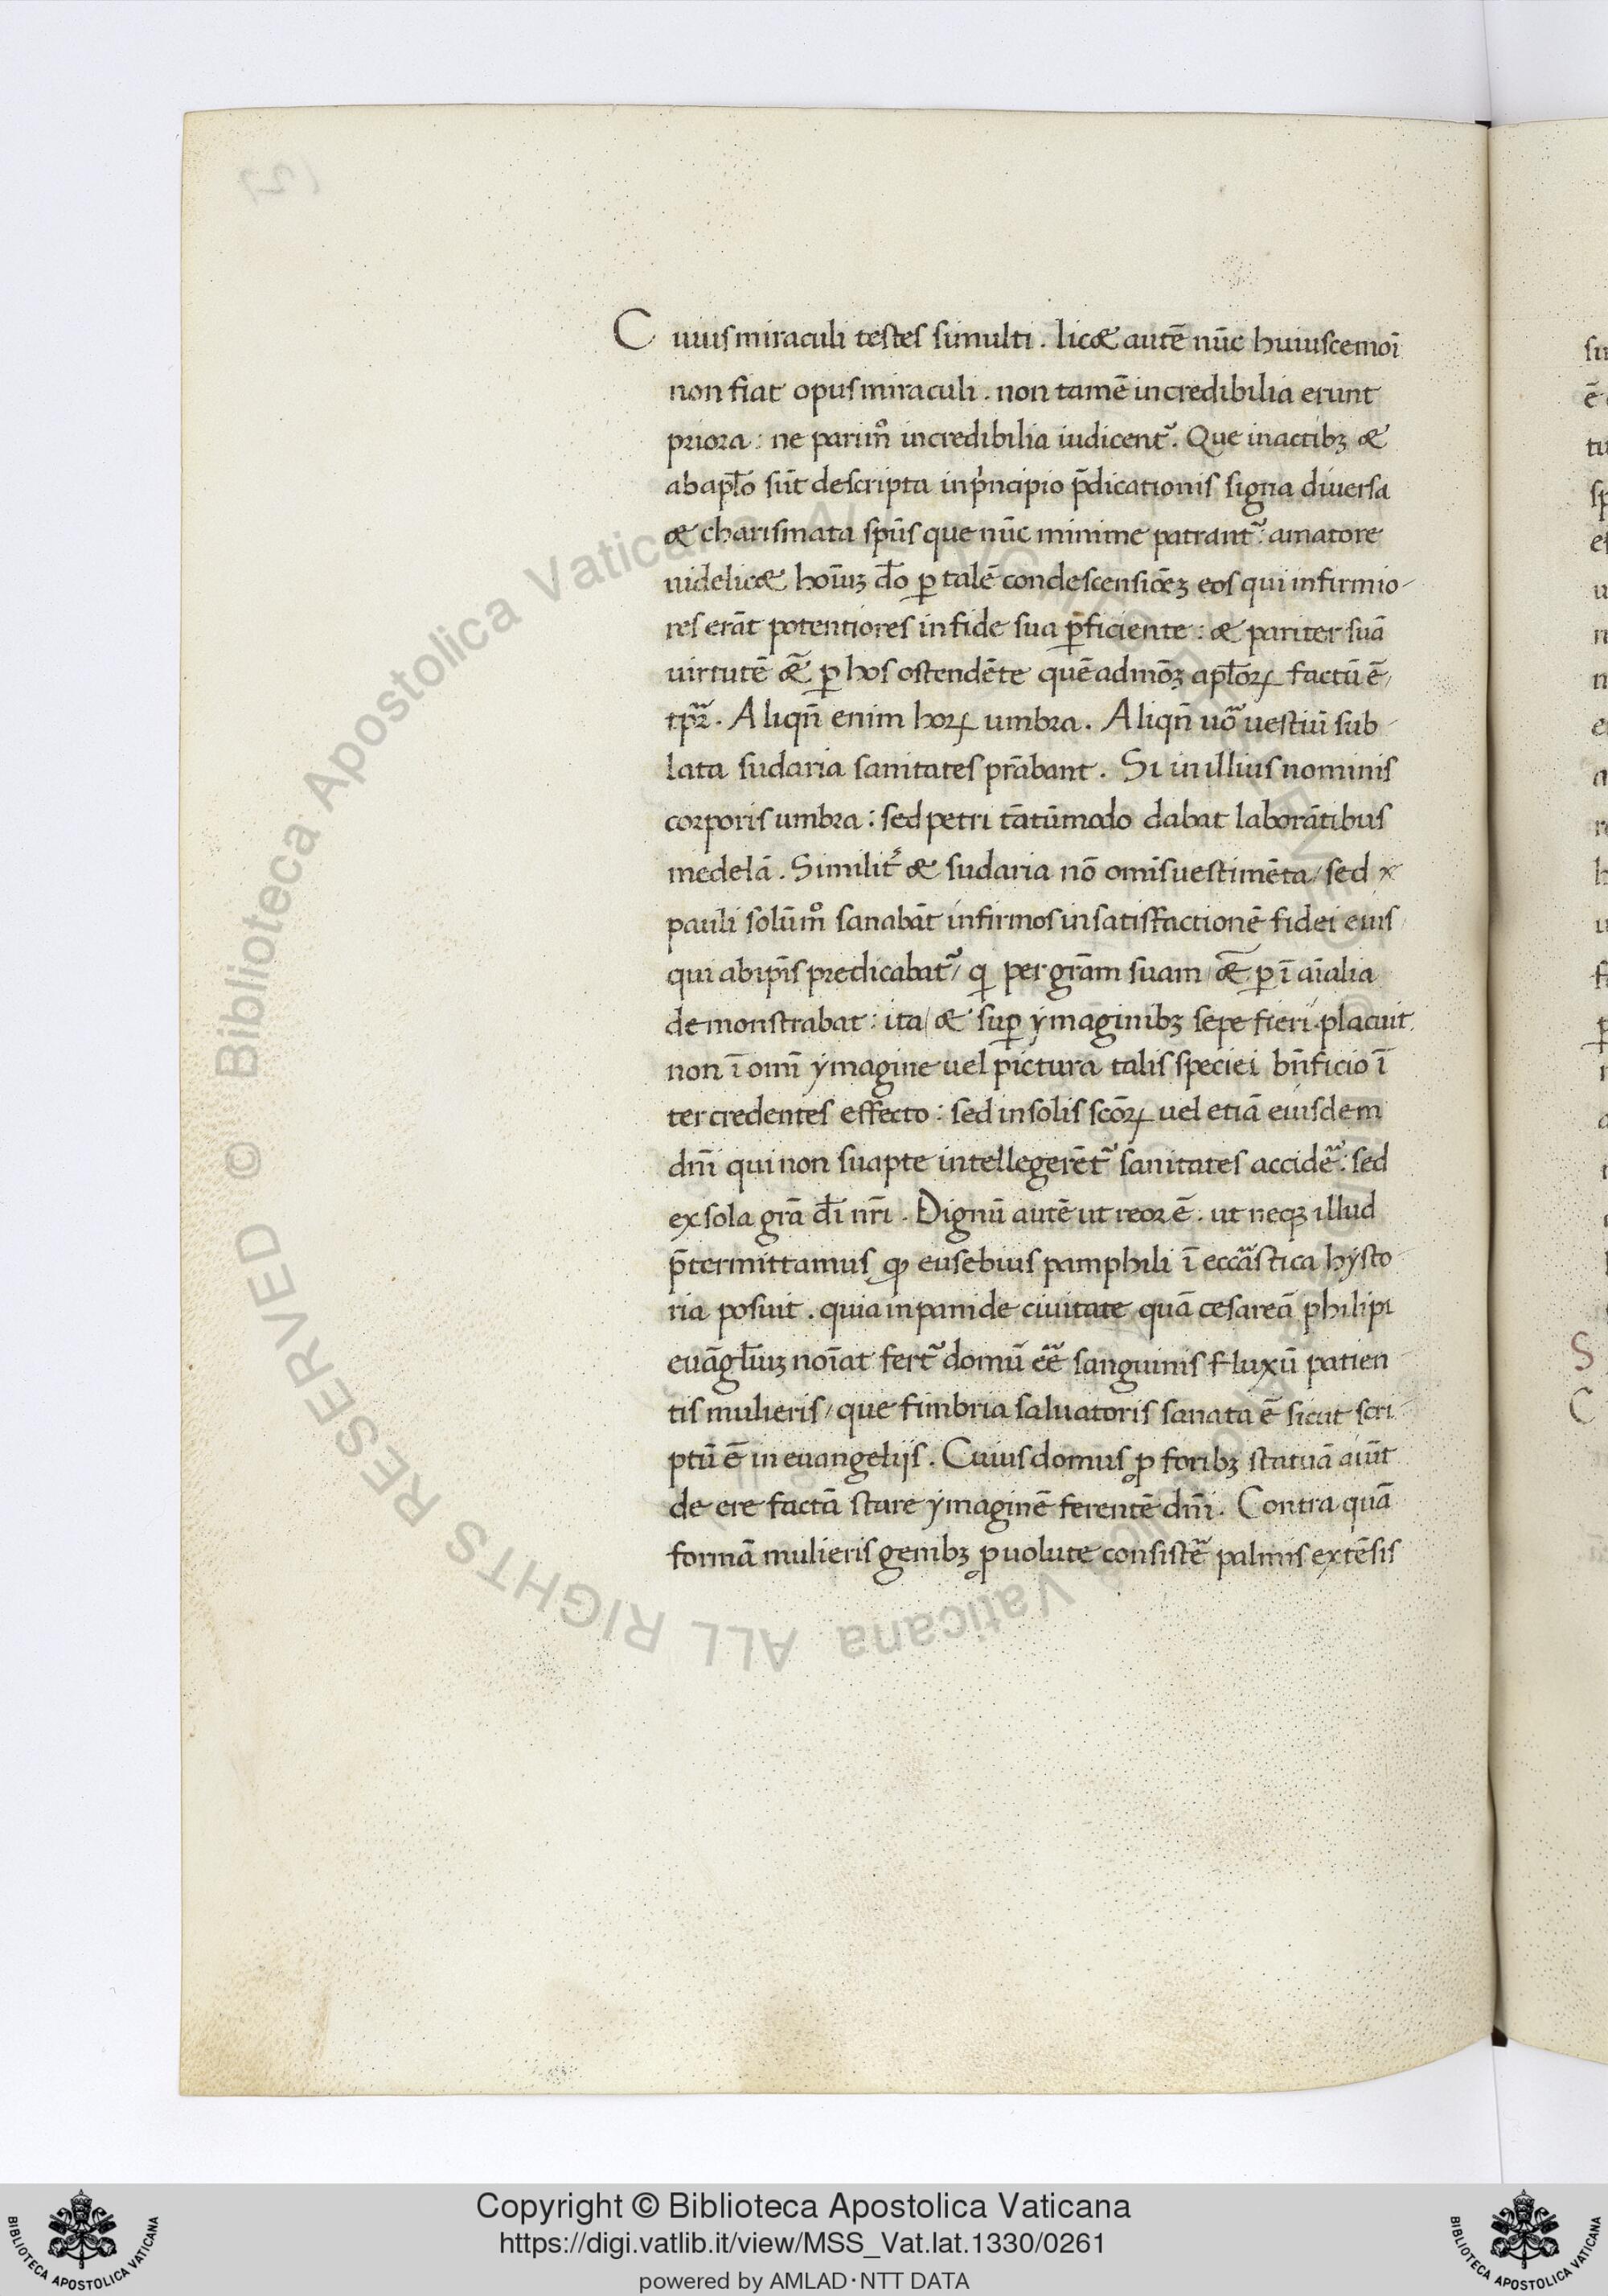 Cuius miraculi testes simulti. licet autē nūc huiuscemoī
non fiat opus miraculi. non tamē incredibilia erunt
priora: ne parimº incredibilia iudicent᷑. Que in actibꝫ et
ab apło sūt descripta in pͥncipio p̄dicationis signa diuersa
et charismata spūs que nūc minime patrant᷑: amatore
uidelicet hoīuꝫ do̅ ꝑ talē condescensiōeꝫ eos qui infirmio-
res erāt potentiores in fide sua ꝑficiente: et pariter suā
uirtutē et̄ ꝑ hos ostendēte quēadmōꝫ apłoꝝ factū ē/
Aliqn̄ enim hoꝝ umbra. Aliqn̄ uō uestiū sub-
lata sudaria sanitates prābant. Si in illius nominis
corporis umbra: sed petri tātūmodo dabat laborātibus
medelā. Similit᷑ et sudaria nō omīs uestimēta/ sed
pauli solūmº sanabāt infirmos in satisfactionē fidei eius
qui ab ipīs predicabat᷑/ qͥ per grām suam/ et̄ ꝑ ī aīalia
demonstrabat: ita/ et suꝑ ymaginibꝫ sepe fieri placuit.
non ī omī ymagine uel pictura talis speciei bn̄ficio ī
ter credentes effecto: sed in solis scōꝝ uel etiā eiusdem
dn̄i qui non suapte intellegerēt᷑ sanitates accidēr̄: sed
ex sola grā dī nr̄i. Dignū autē ut reor ē. ut neqꝫ illud
p̄termittamus ꝙ eusebius pamphili ī eccāstica hysto-
ria posuit. quia in panide ciuitate quā cesareā philipi
euāgłiuꝫ noīat fert᷑ domū eē sanguinis fluxū patien
tis mulieris/ que fimbria saluatoris sanata ē sicut scri-
ptū ē in euangelijs. Cuius domus ꝓ foribꝫ statuā aiūt
de ere factā stare ymaginē ferentē dn̄i. Contra quā
formā mulieris genibꝫ ꝓuolute consistēr̄ palmis extēsis
© Biblioteca Apostolica Vaticana ALL RIGHTS RESERVED
Copyright © Biblioteca Apostolica Vaticana
https://digi.vatlib.it/view/MSS_Vat.lat.1330/0261
powered by AMLAD·NTT DATA
BIBLIOTECA APOSTOLICA VATICANA
BIBLIOTECA APOSTOLICA VATICANA